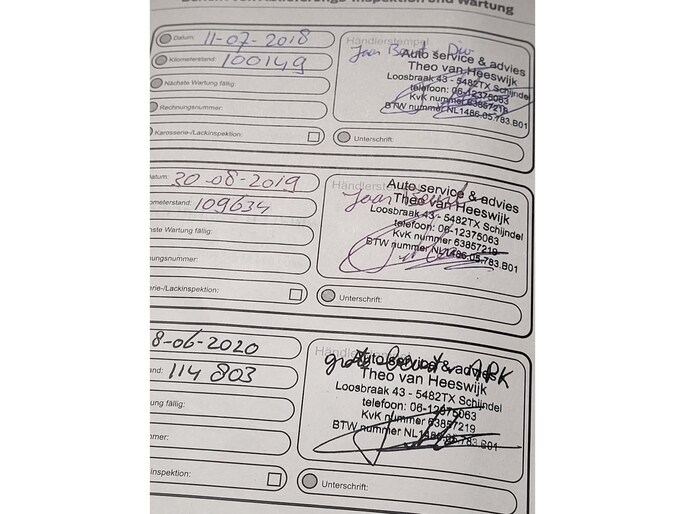 Bericht von Ablieferungs-Inspektion und Wartung
Datum: 11-07-2018
Kilometerstand: 100149
Nächste Wartung fällig:
Rechnungsnummer:
Karosserie-/Lackinspektion:
Händlerstempel
Auto service & advies
Theo van Heeswijk
Loosbraak 43 - 5482TX Schijndel
telefoon: 06-12375063
KvK nummer 63857219
BTW nummer NL1486.05.783.B01
Unterschrift:
Datum: 30-08-2019
ometerstand: 109634
hste Wartung fällig:
nungsnummer:
erie-/Lackinspektion:
Händlerste
Auto service & advies
Theo van Heeswijk
Loosbraak 43 - 5482TX Schijndel
telefoon: 06-12375063
KvK nummer 63857219
BTW nummer NL1486.05.783.B01
Unterschrift:
8-06-2020
and: 114803
ung fällig:
mmer:
inspektion:
grote beurt + APK
Auto service & advies
Theo van Heeswijk
Loosbraak 43 - 5482TX Schijndel
telefoon: 06-12375063
KvK nummer 63857219
BTW nummer NL1486.05.783.B01
Unterschrift: